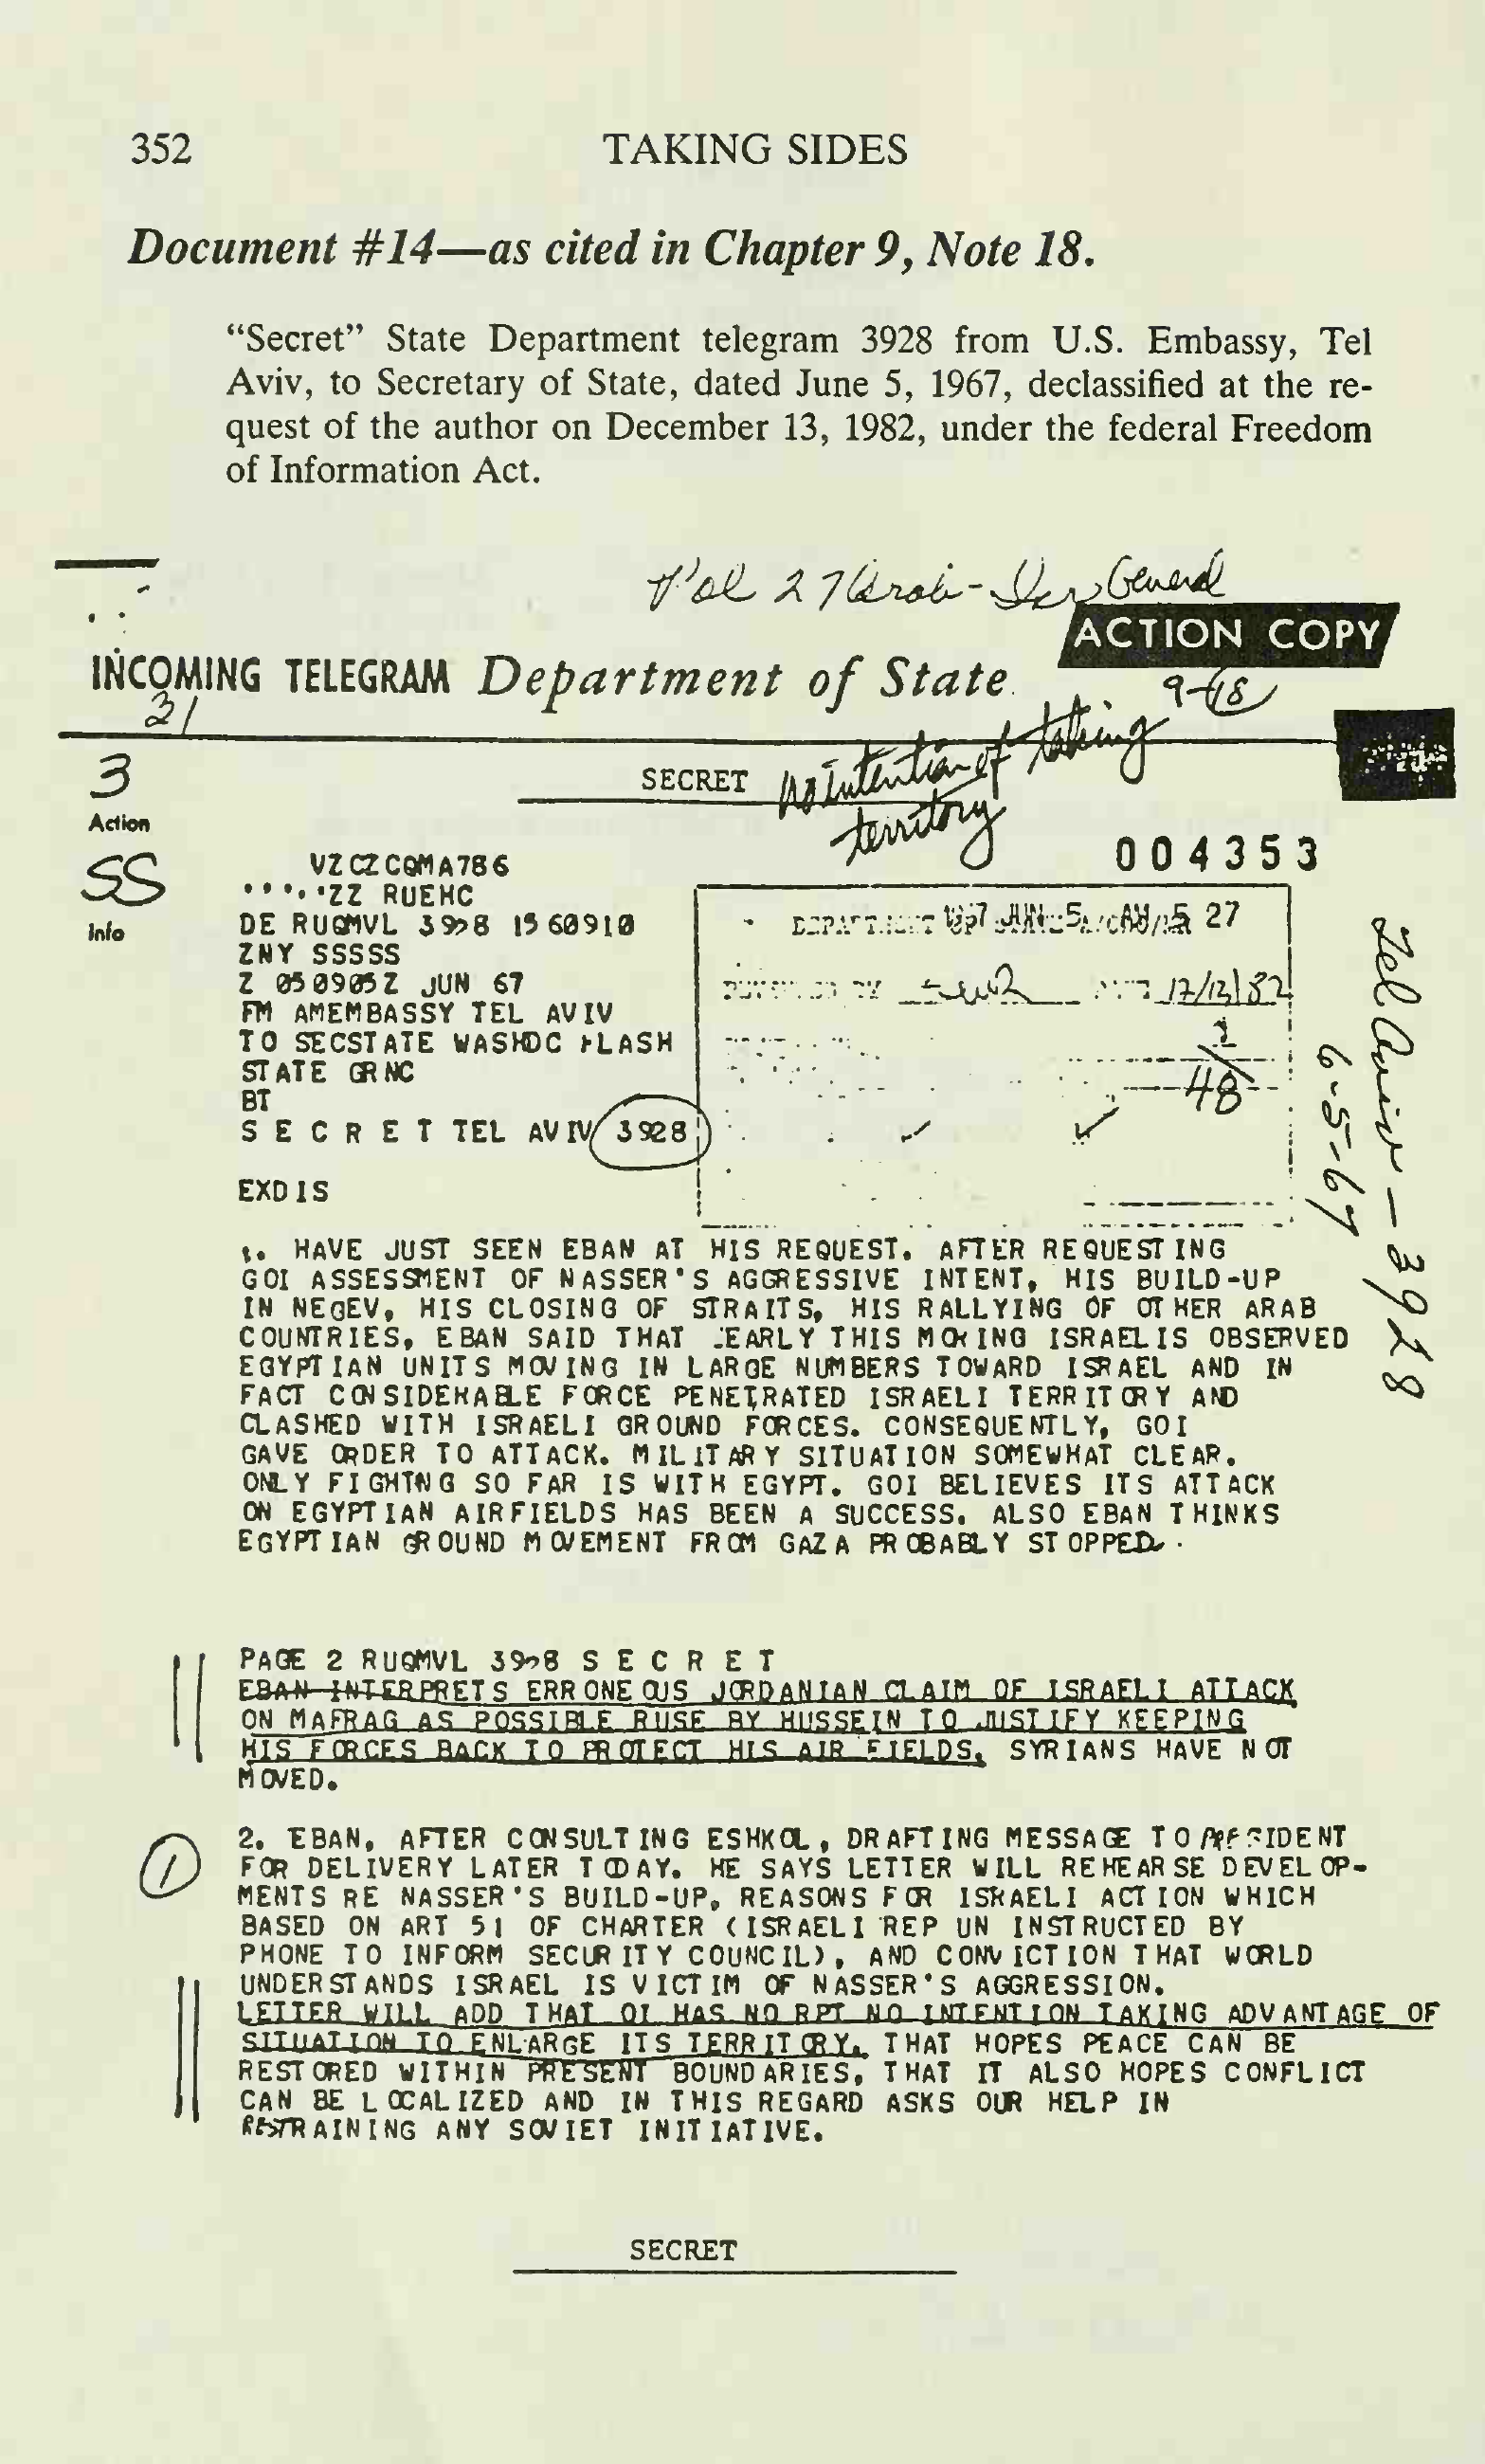 352 TAKING SIDES
Document #14—as cited in Chapter 9, Note 18.
“Secret” State Department telegram 3928 from U.S. Embassy, Tel
Aviv, to Secretary of State, dated June 5, 1967, declassified at the re-
quest of the author on December 13, 1982, under the federal Freedom
of Information Act.
Vol 27 Arab-Isr General
ACTION COPY
INCOMING TELEGRAM Department of State
31
9-18
3
SECRET
no intention of taking
territory
Action
004353
SS
Info
VZCZCQMA786
ZZ RUEHC
DE RUQMVL 3928 1560910
ZNY SSSSS
Z 050905Z JUN 67
FM AMEMBASSY TEL AVIV
TO SECSTATE WASHDC FLASH
STATE GRNC
BT
S E C R E T TEL AVIV 3928
1967 JUN 5 AM 5 27
12/13/82
1
48
Tel Aviv - 3928
6-5-67
EXDIS
1. HAVE JUST SEEN EBAN AT HIS REQUEST. AFTER REQUESTING
GOI ASSESSMENT OF NASSER'S AGGRESSIVE INTENT, HIS BUILD-UP
IN NEGEV, HIS CLOSING OF STRAITS, HIS RALLYING OF OTHER ARAB
COUNTRIES, EBAN SAID THAT EARLY THIS MORING ISRAELIS OBSERVED
EGYPTIAN UNITS MOVING IN LARGE NUMBERS TOWARD ISRAEL AND IN
FACT CONSIDERABLE FORCE PENETRATED ISRAELI TERRITORY AND
CLASHED WITH ISRAELI GROUND FORCES. CONSEQUENTLY, GOI
GAVE ORDER TO ATTACK. MILITARY SITUATION SOMEWHAT CLEAR.
ONLY FIGHTING SO FAR IS WITH EGYPT. GOI BELIEVES ITS ATTACK
ON EGYPTIAN AIRFIELDS HAS BEEN A SUCCESS. ALSO EBAN THINKS
EGYPTIAN GROUND MOVEMENT FROM GAZA PROBABLY STOPPED.
PAGE 2 RUQMVL 3928 S E C R E T
EBAN INTERPRETS ERRONEOUS JORDANIAN CLAIM OF ISRAELI ATTACK
ON MAFRAG AS POSSIBLE RUSE BY HUSSEIN TO JUSTIFY KEEPING
HIS FORCES BACK TO PROTECT HIS AIR FIELDS. SYRIANS HAVE NOT
MOVED.
1
2. EBAN, AFTER CONSULTING ESHKOL, DRAFTING MESSAGE TO PRESIDENT
FOR DELIVERY LATER TODAY. HE SAYS LETTER WILL REHEARSE DEVELOP-
MENTS RE NASSER'S BUILD-UP, REASONS FOR ISRAELI ACTION WHICH
BASED ON ART 51 OF CHARTER (ISRAELI REP UN INSTRUCTED BY
PHONE TO INFORM SECURITY COUNCIL), AND CONVICTION THAT WORLD
UNDERSTANDS ISRAEL IS VICTIM OF NASSER'S AGGRESSION.
LETTER WILL ADD THAT OI HAS NO RPT NO INTENTION TAKING ADVANTAGE OF
SITUATION TO ENLARGE ITS TERRITORY. THAT HOPES PEACE CAN BE
RESTORED WITHIN PRESENT BOUNDARIES, THAT IT ALSO HOPES CONFLICT
CAN BE LOCALIZED AND IN THIS REGARD ASKS OUR HELP IN
RESTRAINING ANY SOVIET INITIATIVE.
SECRET